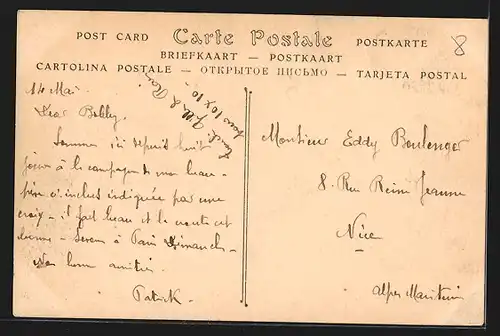 POST CARD Carte Postale POSTKARTE
BRIEFKAART — POSTKAART
CARTOLINA POSTALE — ОТКРЫТОЕ ПИСЬМО — TARJETA POSTAL
8
14 Mai
Dear Bobby,
Sommes ici depuis huit
jours à la campagne de mon beau-
père ci inclus indiquée par une
croix — il fait beau et la route est
bonne — Serons à Paris Dimanche —
amitiés
Patrick.
Monsieur Eddy Boulenger
8. Rue Reine Jeanne
Nice
Alpes Maritimes